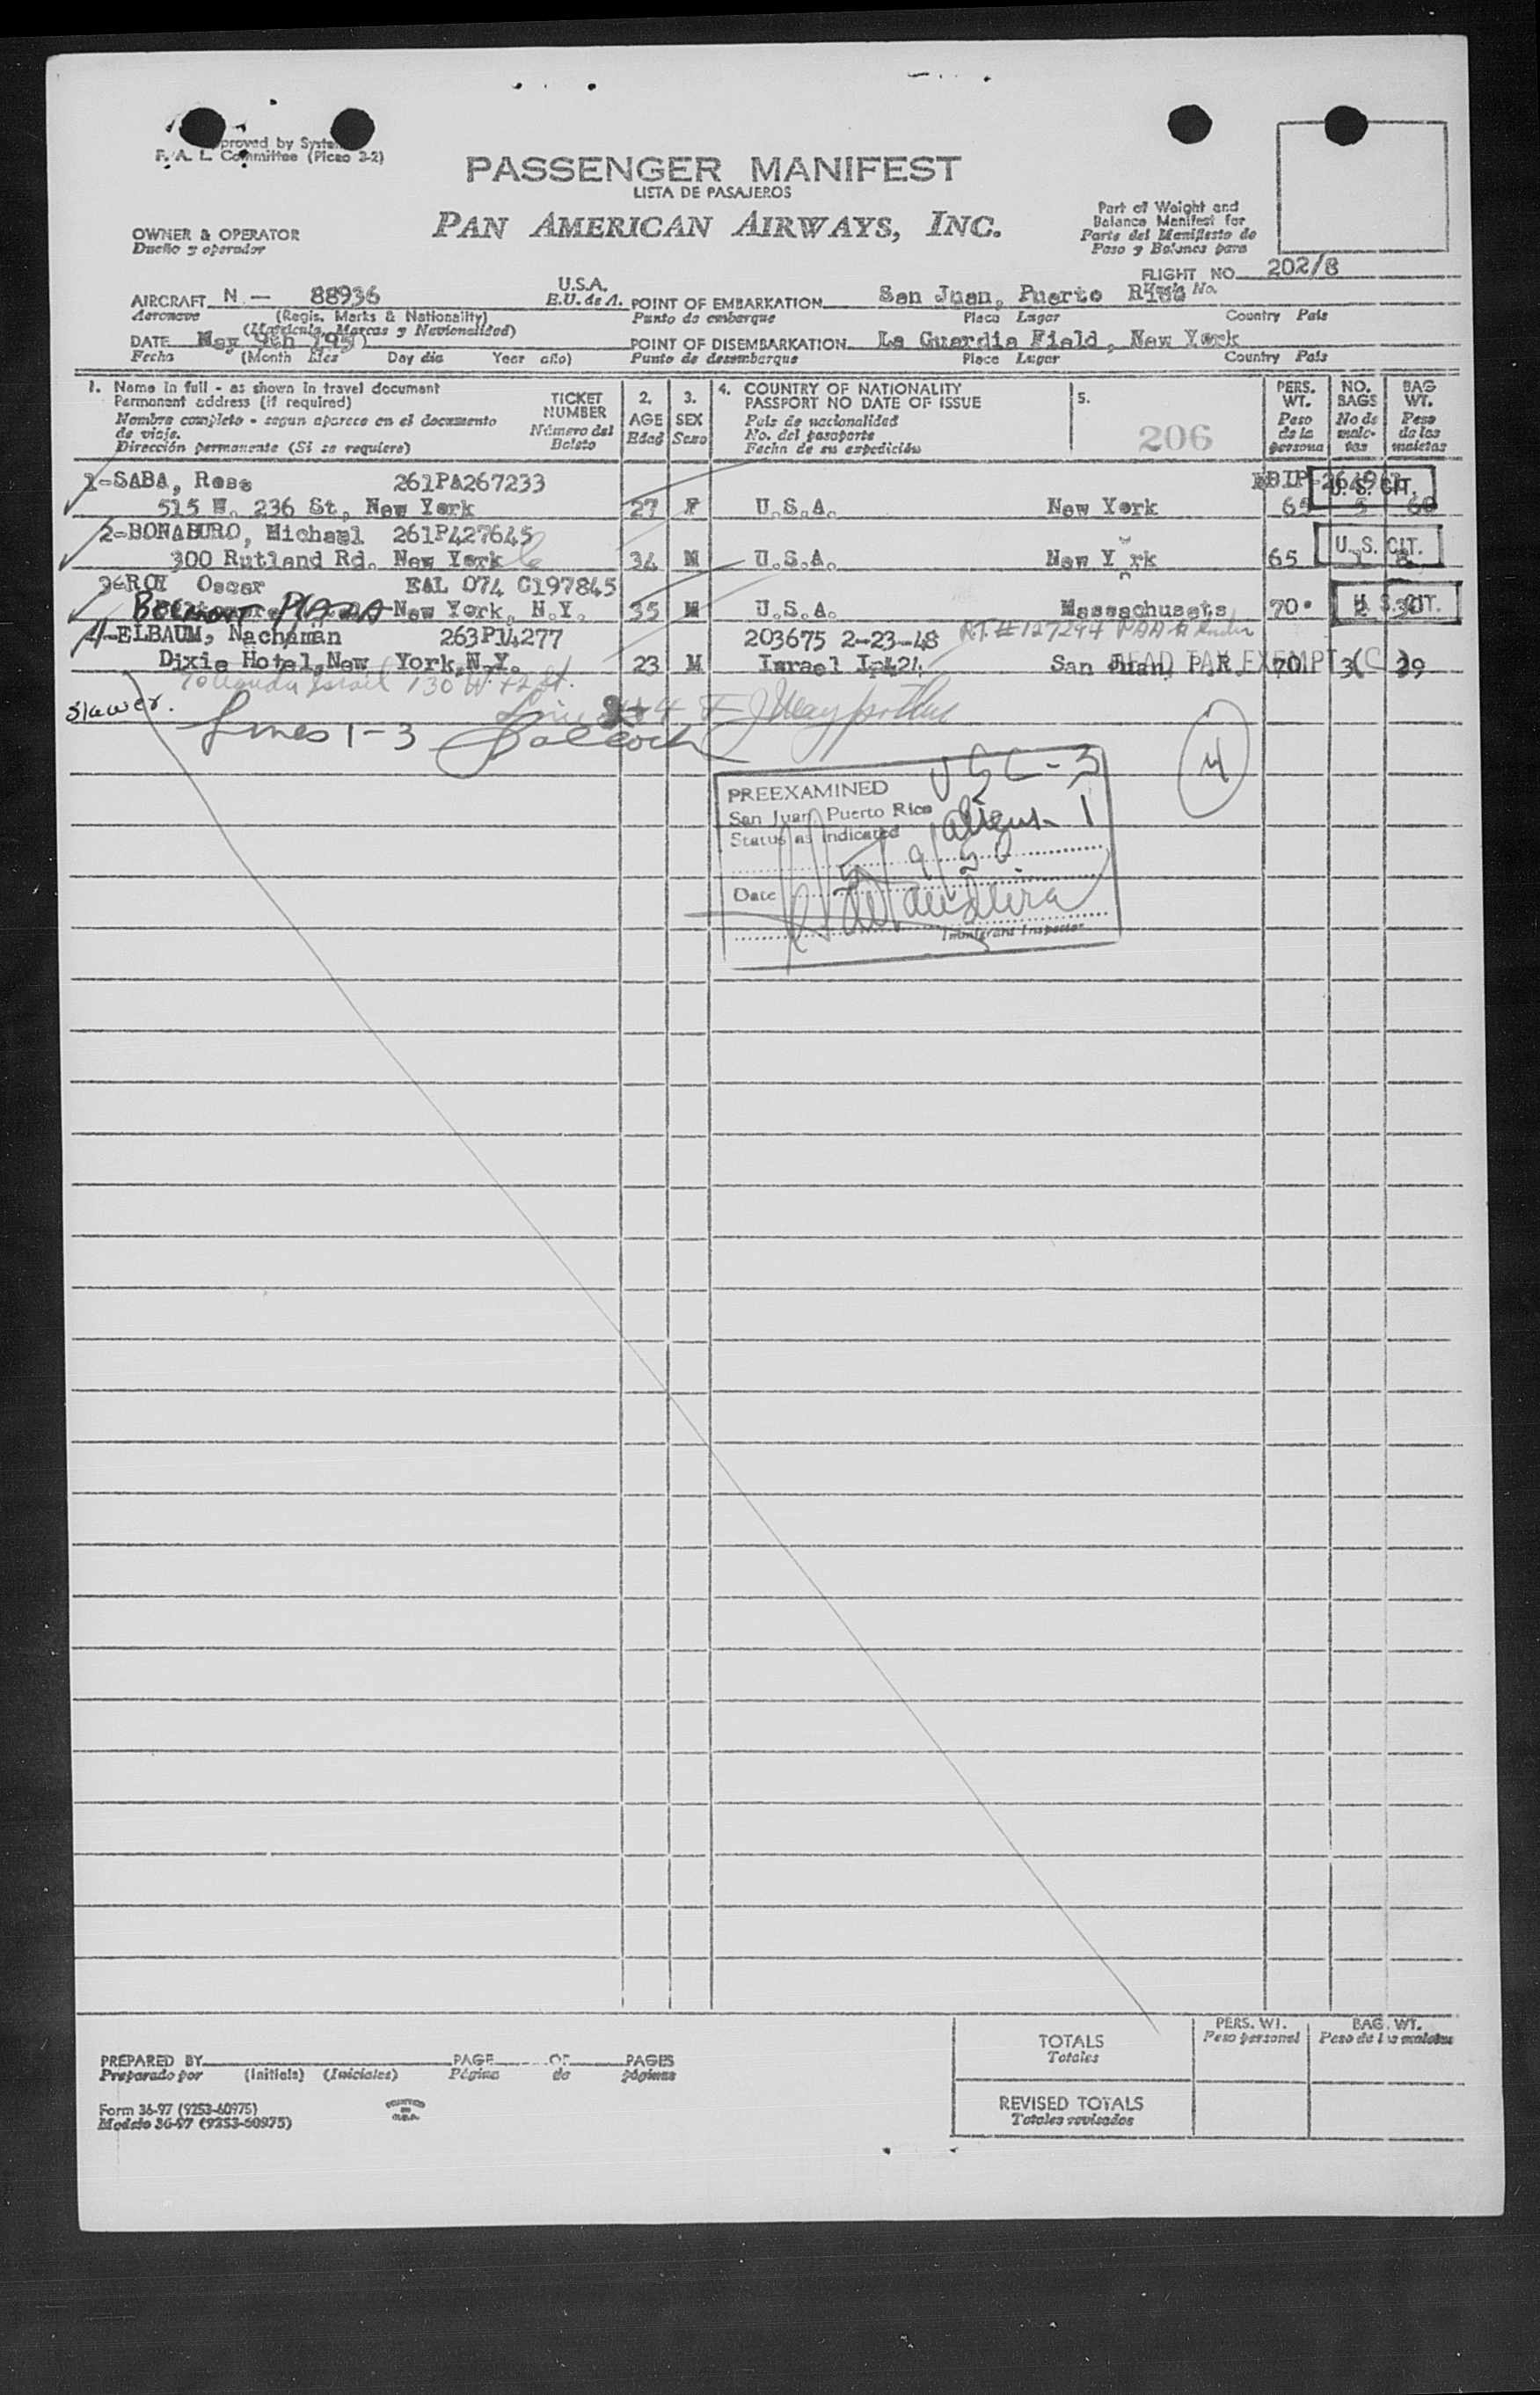 proved by Syste
F. A. L. Committee (Picao 2-2)
PASSENGER MANIFEST
LISTA DE PASAJEROS
PAN AMERICAN AIRWAYS, INC.
Part of Weight and
Balance Manifest for
Parte del Manifiesto de
Peso y Balance para
OWNER & OPERATOR
Dueño y operador
FLIGHT NO. 202/8
Vuelo No.
AIRCRAFT N — 88936 U.S.A.
E.U. de A.
Aeronave (Regis. Marks & Nationality)
(Matricula, Marcas y Nacionalidad)
POINT OF EMBARKATION San Juan, Puerto Rico
Punto de embarque Place Lugar Country País
DATE May 9th 1950
Fecha (Month Mes Day dia Year año)
POINT OF DISEMBARKATION La Guardia Field, New York
Punto de desembarque Place Lugar Country País
1. Name in full - as shown in travel document
Permanent address (if required)
Nombre completo - segun aparece en el documento
de viaje.
Dirección permanente (Si se requiere)
TICKET
NUMBER
Número del
Boleto
2.
AGE
Edad
3.
SEX
Sexo
4. COUNTRY OF NATIONALITY
PASSPORT NO DATE OF ISSUE
País de nacionalidad
No. del pasaporte
Fecha de su expedición
5.
206
PERS.
WT.
Peso
de la
persona
NO.
BAGS
No de
male-
tas
BAG
WT.
Peso
de las
maletas
1-SABA, Rose 261PA267233
U. S. CIT.
515 W. 236 St, New York 27 F U.S.A. New York 65 5 60
2-BONABURO, Michael 261P427645
U. S. CIT.
300 Rutland Rd. New York 34 M U.S.A. New York 65 1 8
3-ROY Oscar EAL 074 C197845
U. S. CIT.
BELMONT PLAZA New York, N.Y. 35 M U.S.A. Massachusets 70 2 30
4-ELBAUM, Nachaman 263P14277 203675 2-23-48 RT #127294 PAA
Dixie Hotel, New York, N.Y. 23 M Israel I-424 San Juan, P.R. HEAD TAX EXEMPT (C) 70 3 39
Israel 130 W. 72 St.
Lines 1-3
4
PREEXAMINED USC-3
San Juan, Puerto Rico
Status as indicated aliens-1
Date 5/9/50
Immigrant Inspector
PREPARED BY PAGE OF PAGES
Preparado por (Initials) (Iniciales) Página de páginas
Form 36-97 (9253-60975)
Modelo 36-97 (9253-60975)
PRINTED
IN
U.S.A.
TOTALS
Totales
PERS. WT.
Peso personal
BAG. WT.
Peso de las maletas
REVISED TOTALS
Totales revisados